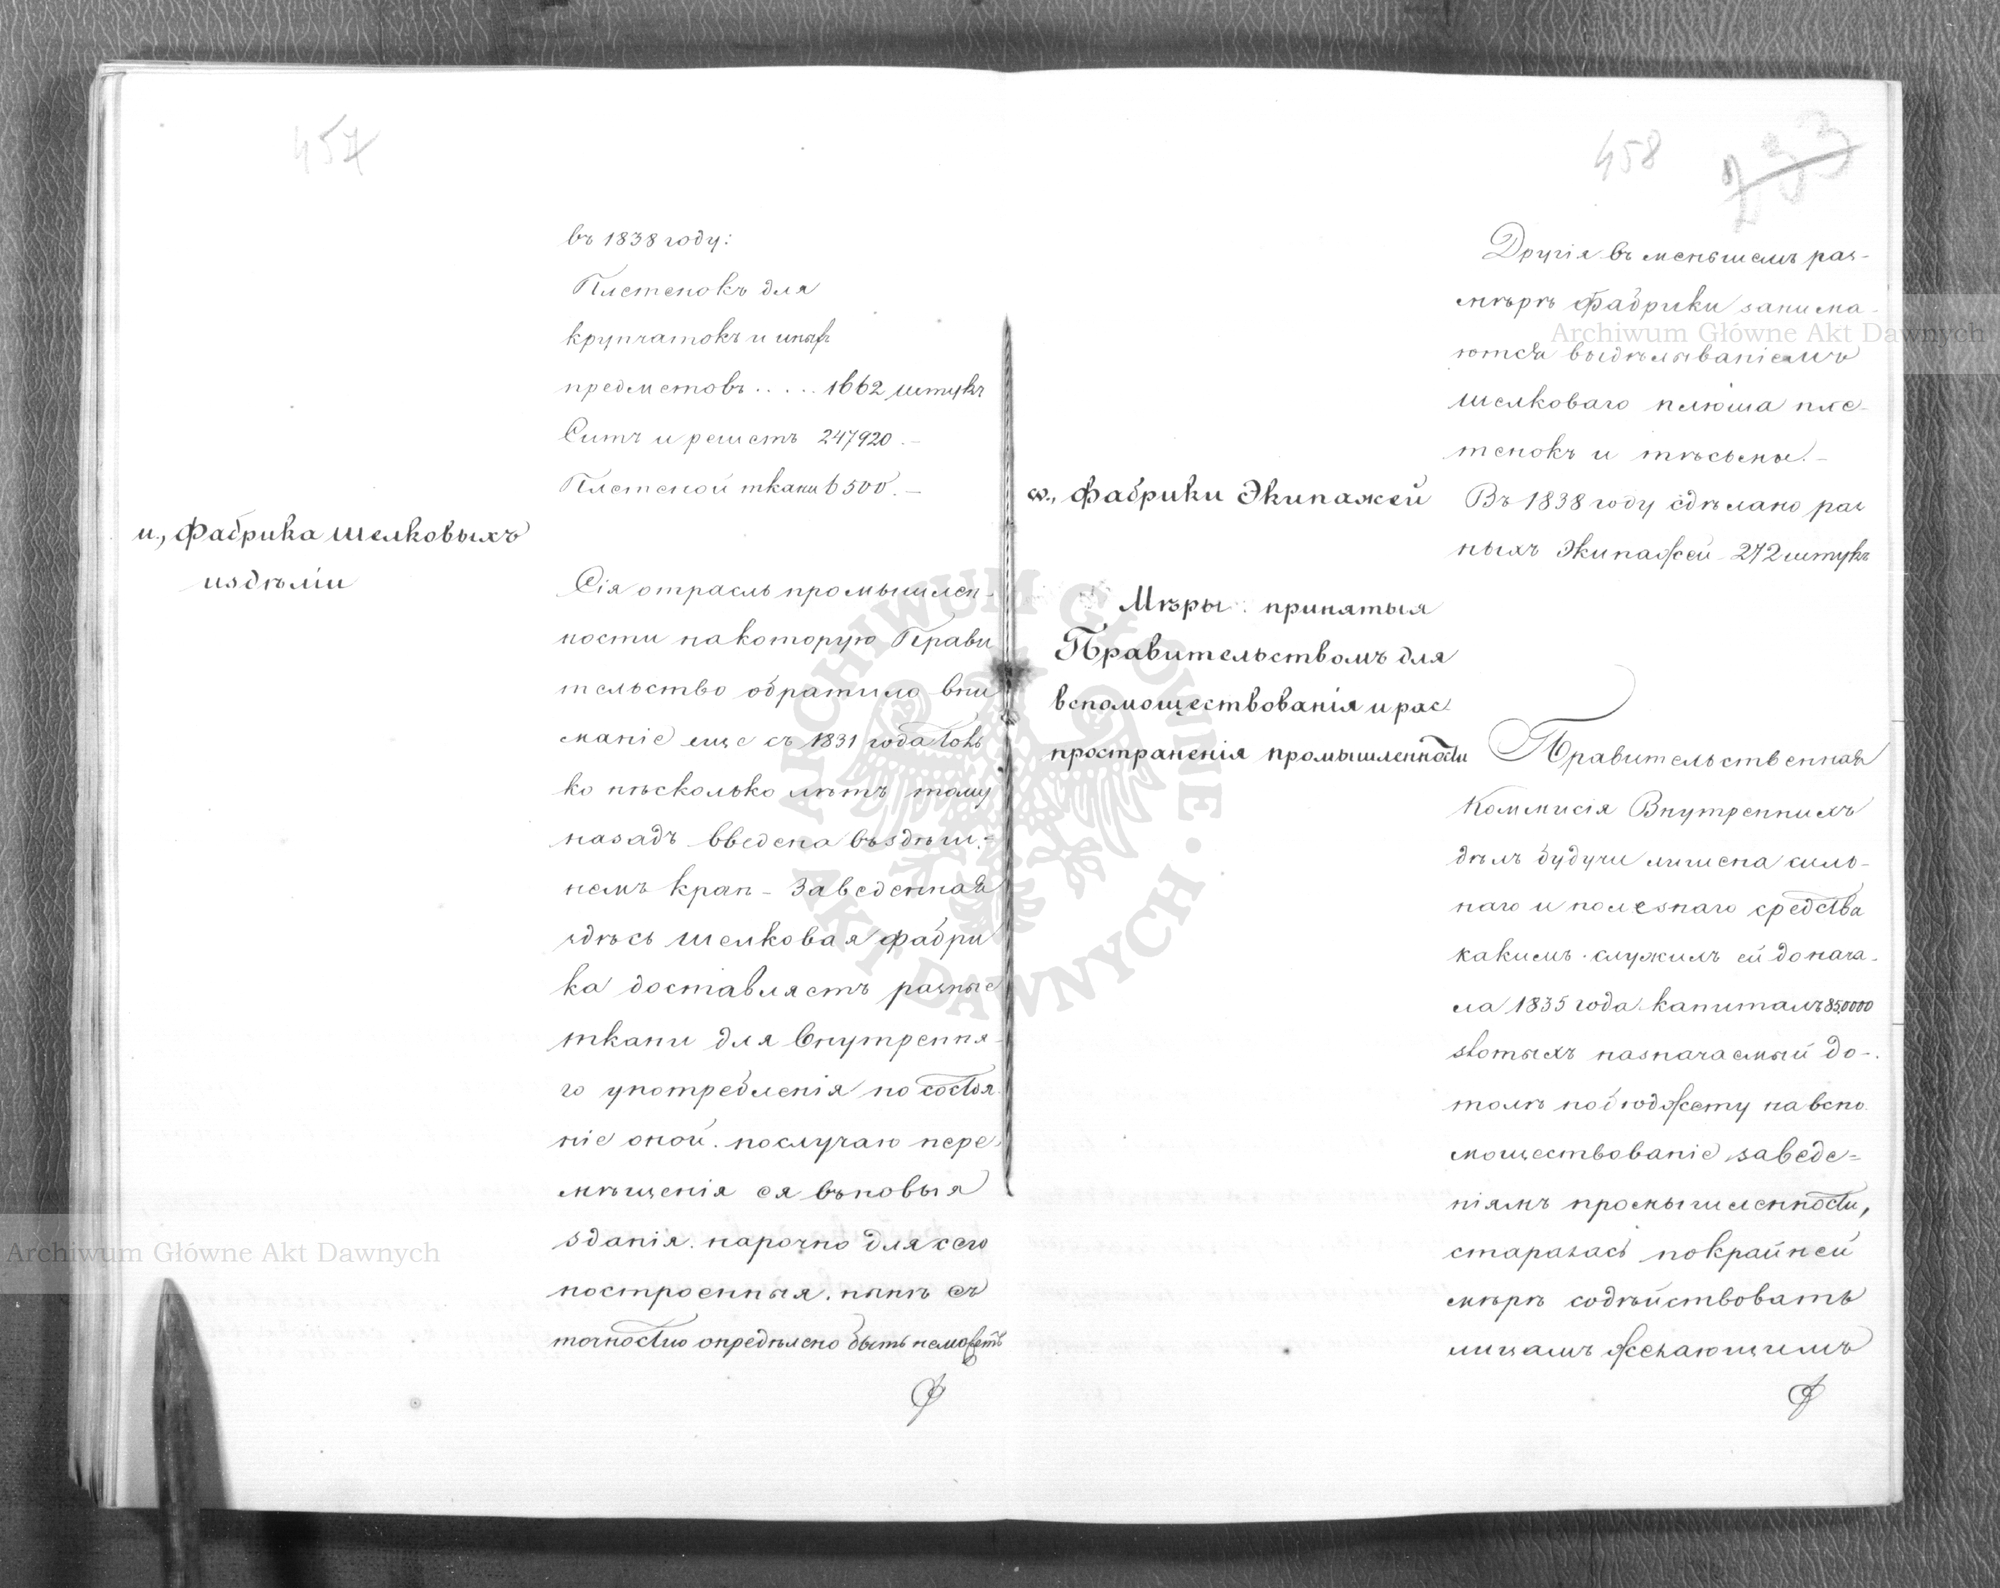 457
въ 1838 году:
Плетенокъ для
крупчатокъ и иныхъ
предметовъ..... 1662 штукъ
Ситъ и решетъ 247920.—
Плетеной ткани 6500.—
и., Фабрика шелковыхъ
издѣліи
Сія отрасль промышлен-
ности на которую Прави
тельство обратило вни
маніе еще съ 1831 года толь
ко нѣсколько лѣтъ тому
назадъ введена въ здѣш-
немъ краѣ - Заведенная
здѣсь шелковая фабри
ка доставляетъ разные
ткани для внутрення-
го употребленія но состоя
ніе оной. по случаю пере-
мѣщенія ея въ новыя
зданія. нарочно для сего
построенныя. нынѣ съ
точностію опредѣлено быть неможетъ
458 233
Другія въ меньшемъ раз-
мѣрѣ Фабрики занима-
ются выдѣлываніемъ
шелковаго плюша пле-
тенокъ и тѣсьмы.—
ѡ., Фабрики Экипажей
Въ 1838 году сдѣлано раз
ныхъ Экипажей - 272 штукъ
Мѣры принятыя
Правительствомъ для
вспомоществованія и рас
пространенія промышленности
Правительственная
Коммисія Внутреннихъ
дѣлъ будучи лишена силь-
наго и полезнаго средства
какимъ служилъ ей до нача-
ла 1835 года капиталъ 850000
злотыхъ назначаемый до-
толѣ по бюджету на вспо
моществованіе заведе-
ніямъ промышленности,
старалась по крайней
мѣрѣ содѣйствовать
лицамъ желающимъ
Archiwum Główne Akt Dawnych
Archiwum Główne Akt Dawnych
ARCHIWUM GŁÓWNE · AKT DAWNYCH ·